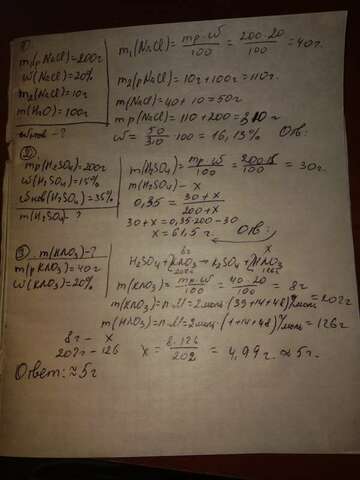 1)
m₁(р NaCl)=200г
ω(NaCl)=20%
m₂(NaCl)=10г
m(H₂O)=100г
ωнов - ?
m₁(NaCl)= mр·ω/100 = 200·20/100 = 40г.
m₂(рNaCl)= 10г+100г=110г.
m(NaCl)=40+10=50г
mр(NaCl)=110+200=310г
ω= 50/310 · 100 = 16,13% Отв:
2)
mр(H₂SO₄)=200г
ω(H₂SO₄)=15%
ωнов(H₂SO₄)=35%
m(H₂SO₄)-?
m(H₂SO₄)= mр·ω/100 = 200·15/100 = 30г.
m(H₂SO₄) - x
0,35 = 30+x/200+x
30+x=0,35·200-30
x=61,5 г. Отв:
3) m(HNO₃)-?
m(рKNO₃)=40г
ω(KNO₃)=20%
8г x
H₂SO₄+2KNO₃→K₂SO₄+2HNO₃
202г 126г
m(KNO₃)= mр·ω/100 = 40·20/100 = 8г
m(KNO₃)=n·M=2моль·(39+14+48)г/моль=202г
m(HNO₃)=n·M=2моль·(1+14+48)г/моль=126г
8г - x
202г - 126
x = 8·126/202 = 4,99г ≈ 5г.
Ответ: ≈5г